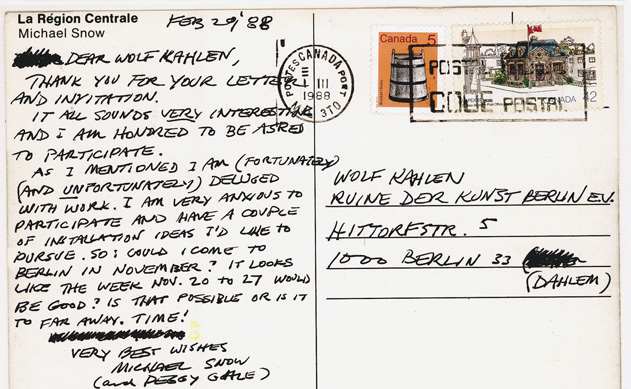 La Région Centrale
Michael Snow
FEB 29/'88
DEAR WOLF KAHLEN,
THANK YOU FOR YOUR LETTER
AND INVITATION.
IT ALL SOUNDS VERY INTERESTING
AND I AM HONORED TO BE ASKED
TO PARTICIPATE.
AS I MENTIONED I AM (FORTUNATELY)
(AND UNFORTUNATELY) DELUGED
WITH WORK. I AM VERY ANXIOUS TO
PARTICIPATE AND HAVE A COUPLE
OF INSTALLATION IDEAS I'D LIKE TO
PURSUE. SO: COULD I COME TO
BERLIN IN NOVEMBER? IT LOOKS
LIKE THE WEEK NOV. 20 TO 27 WOULD
BE GOOD? IS THAT POSSIBLE OR IS IT
TO FAR AWAY. TIME!
VERY BEST WISHES
MICHAEL SNOW
(and PEGGY GALE)
POSTES CANADA POST
III
1988
3T0
Canada 5
POST
CODE POSTAL
CANADA 42
WOLF KAHLEN
RUINE DER KUNST BERLIN E.V.
HITTORFSTR. 5
1000 BERLIN 33
(DAHLEM)